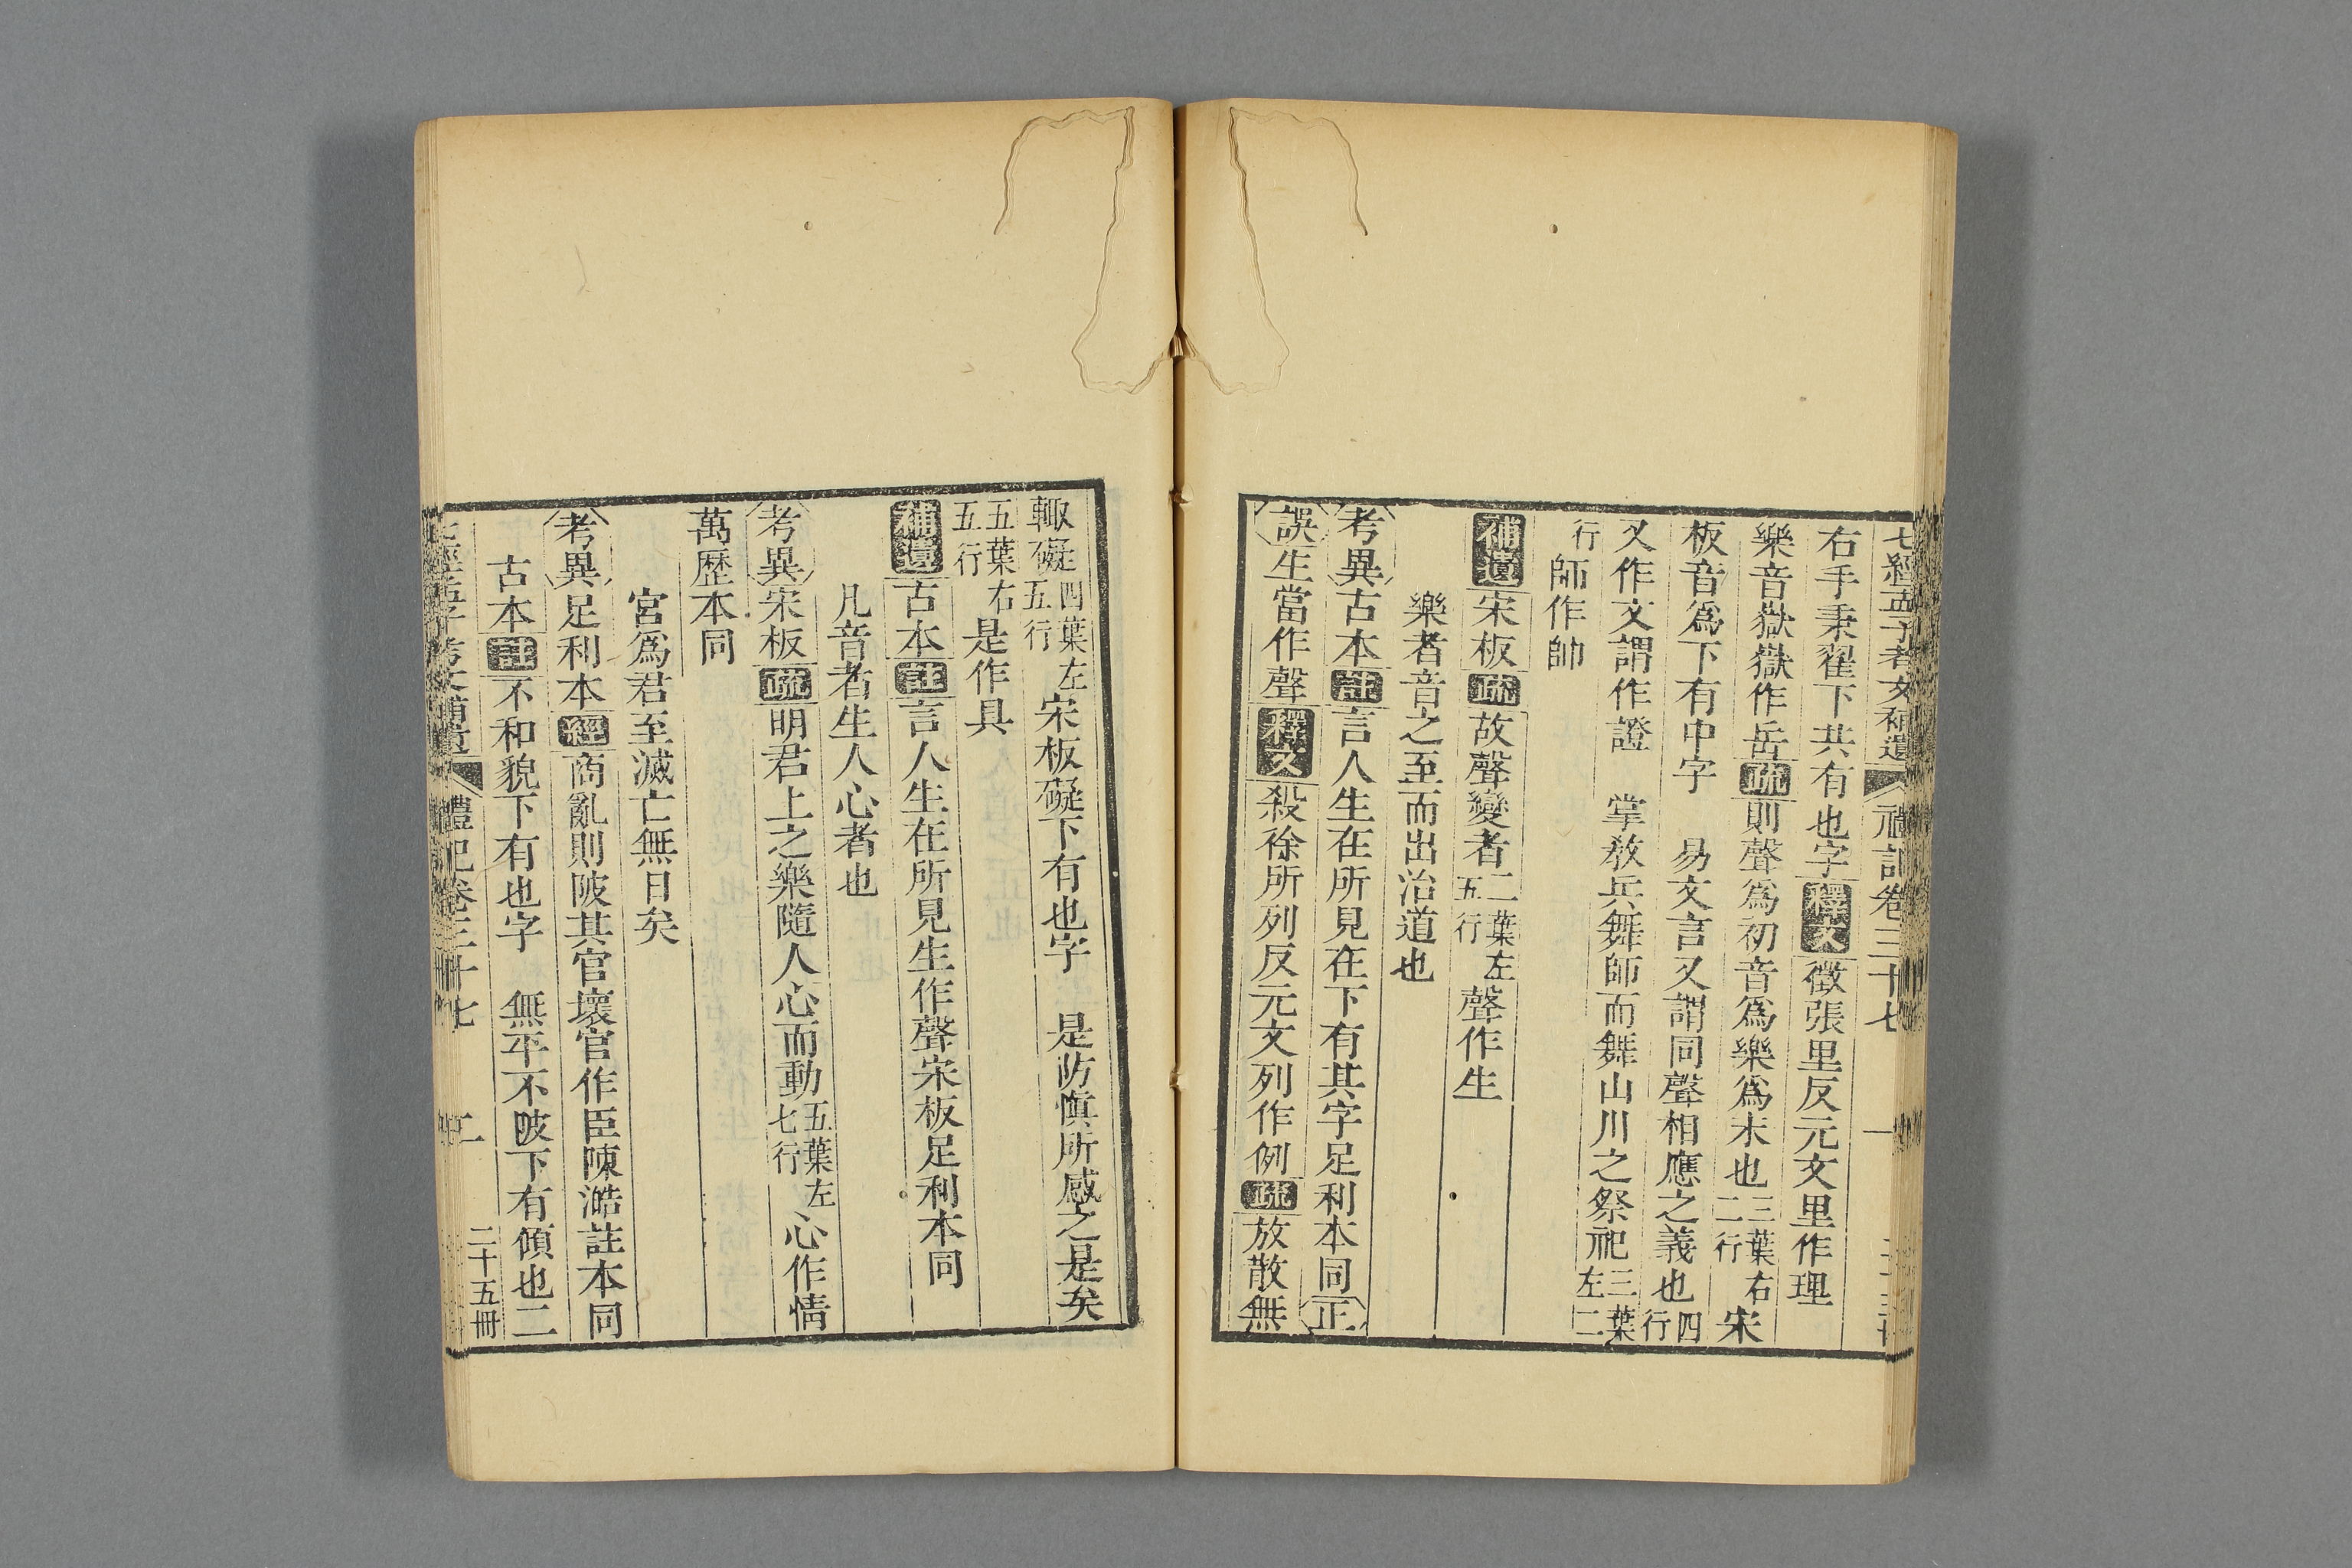 七經孟子考文補遺 禮記卷三十七 一
右手秉翟下共有也字釋文徵張里反元文里作理
樂音嶽嶽作岳疏則聲爲初音爲樂爲末也三葉右二行宋
板音爲下有中字 易文言又謂同聲相應之義也四行
又作文謂作證 掌敎兵舞師而舞山川之祭祀三葉左二
行師作帥
補遺宋板疏故聲變者二葉左五行聲作生
樂者音之至而出治道也
考異古本註言人生在所見在下有其字足利本同正
誤生當作聲釋文殺徐所列反元文列作例疏放散無
輙礙四葉左五行宋板礙下有也字 是防愼所感之是矣
五葉右五行是作具
補遺古本註言人生在所見生作聲宋板足利本同
凡音者生人心者也
考異宋板疏明君上之樂隨人心而動五葉左七行心作情
萬歷本同
宮爲君至滅亡無日矣
考異足利本經商亂則陂其官壞官作臣陳澔註本同
古本註不和貌下有也字 無平不陂下有傾也二
七經孟子考文補遺 禮記卷三十七 二 二十五冊